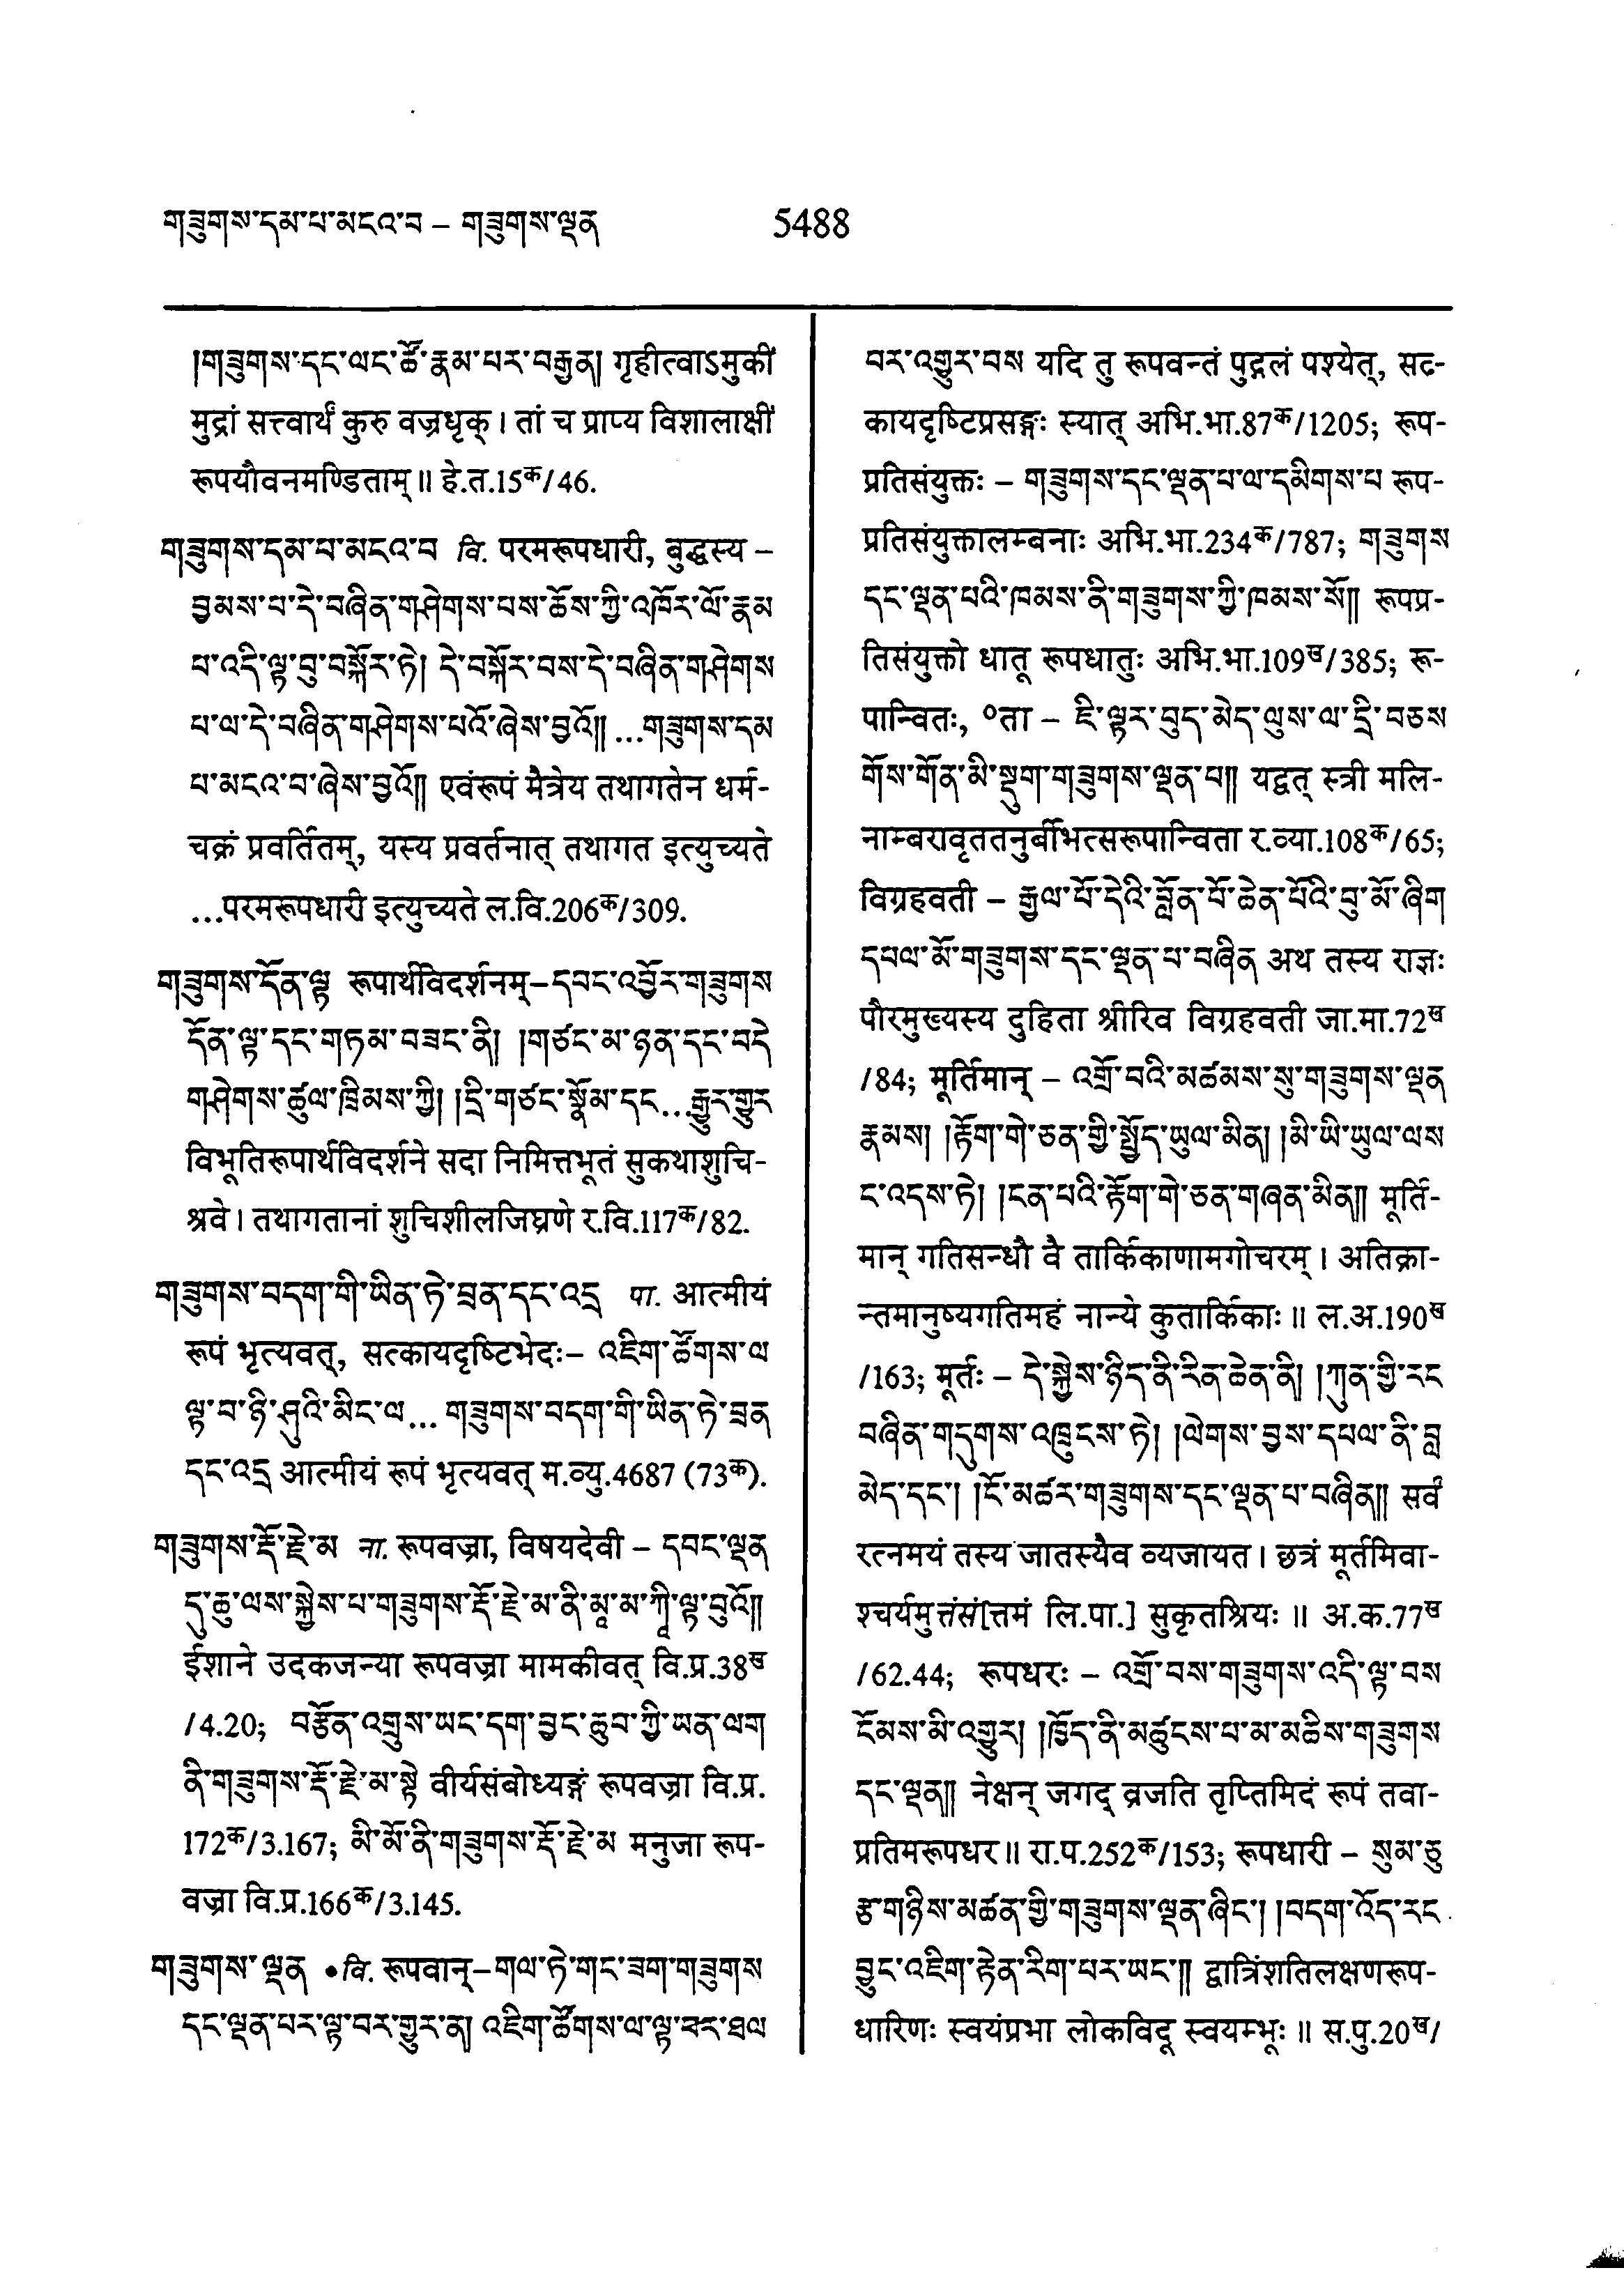 གཟུགས་དམ་པ་མངའ་བ – གཟུགས་ལྡན
5488
།གཟུགས་དང་ལང་ཚོ་རྣམ་པར་བརྒྱན། गृहीत्वाऽमुकीं
मुद्रां सत्त्वार्थं कुरु वज्रधृक् । तां च प्राप्य विशालाक्षीं
रूपयौवनमण्डिताम् ॥ हे.त.15क/46.
གཟུགས་དམ་པ་མངའ་བ वि. परमरूपधारी, बुद्धस्य –
བྱམས་པ་དེ་བཞིན་གཤེགས་པས་ཆོས་ཀྱི་འཁོར་ལོ་རྣམ
པ་འདི་ལྟ་བུ་བསྐོར་ཏེ། དེ་བསྐོར་བས་དེ་བཞིན་གཤེགས
པ་ལ་དེ་བཞིན་གཤེགས་པའོ་ཞེས་བྱའོ།། ...གཟུགས་དམ
པ་མངའ་བ་ཞེས་བྱའོ།། एवंरूपं मैत्रेय तथागतेन धर्म-
चक्रं प्रवर्तितम्, यस्य प्रवर्तनात् तथागत इत्युच्यते
...परमरूपधारी इत्युच्यते ल.वि.206क/309.
གཟུགས་དོན་ལྟ रूपार्थविदर्शनम्–དབང་འབྱོར་གཟུགས
དོན་ལྟ་དང་གཏམ་བཟང་ནི། །གཙང་མ་ཉན་དང་བདེ
གཤེགས་ཚུལ་ཁྲིམས་ཀྱི། །དྲི་གཙང་སྣོམ་དང...རྒྱུར་གྱུར
विभूतिरूपार्थविदर्शने सदा निमित्तभूतं सुकथाशुचि-
श्रवे । तथागतानां शुचिशीलजिघ्रणे र.वि.117क/82.
གཟུགས་བདག་གི་ཡིན་ཏེ་བྲན་དང་འདྲ पा. आत्मीयं
रूपं भृत्यवत्, सत्कायदृष्टिभेदः– འཇིག་ཚོགས་ལ
ལྟ་བ་ཉི་ཤུའི་མིང་ལ... གཟུགས་བདག་གི་ཡིན་ཏེ་བྲན
དང་འདྲ आत्मीयं रूपं भृत्यवत् म.व्यु.4687 (73क).
གཟུགས་རྡོ་རྗེ་མ ना. रूपवज्रा, विषयदेवी – དབང་ལྡན
དུ་ཆུ་ལས་སྐྱེས་པ་གཟུགས་རྡོ་རྗེ་མ་ནི་མཱ་མ་ཀཱི་ལྟ་བུའོ།།
ईशाने उदकजन्या रूपवज्रा मामकीवत् वि.प्र.38ख
/4.20; བརྩོན་འགྲུས་ཡང་དག་བྱང་ཆུབ་ཀྱི་ཡན་ལག
ནི་གཟུགས་རྡོ་རྗེ་མ་སྟེ वीर्यसंबोध्यङ्गं रूपवज्रा वि.प्र.
172क/3.167; མི་མོ་ནི་གཟུགས་རྡོ་རྗེ་མ मनुजा रूप-
वज्रा वि.प्र.166क/3.145.
གཟུགས་ལྡན •वि. रूपवान्–གལ་ཏེ་གང་ཟག་གཟུགས
དང་ལྡན་པར་ལྟ་བར་གྱུར་ན། འཇིག་ཚོགས་ལ་ལྟ་བར་ཐལ
བར་འགྱུར་བས यदि तु रूपवन्तं पुद्गलं पश्येत्, सत-
कायदृष्टिप्रसङ्गः स्यात् अभि.भा.87क/1205; रूप-
प्रतिसंयुक्तः – གཟུགས་དང་ལྡན་པ་ལ་དམིགས་པ रूप-
प्रतिसंयुक्तालम्बनाः अभि.भा.234क/787; གཟུགས
དང་ལྡན་པའི་ཁམས་ནི་གཟུགས་ཀྱི་ཁམས་སོ།། रूपप्र-
तिसंयुक्तो धातू रूपधातुः अभि.भा.109ख/385; रू-
पान्वितः, ०ता – ཇི་ལྟར་བུད་མེད་ལུས་ལ་དྲི་བཅས
གོས་གོན་མི་སྡུག་གཟུགས་ལྡན་པ།། यद्वत् स्त्री मलि-
नाम्बरावृततनुर्बीभत्सरूपान्विता र.व्या.108क/65;
विग्रहवती – རྒྱལ་པོ་དེའི་བློན་པོ་ཆེན་པོའི་བུ་མོ་ཞིག
དཔལ་མོ་གཟུགས་དང་ལྡན་པ་བཞིན अथ तस्य राज्ञः
पौरमुख्यस्य दुहिता श्रीरिव विग्रहवती जा.मा.72ख
/84; मूर्तिमान् – འགྲོ་བའི་མཚམས་སུ་གཟུགས་ལྡན
རྣམས། །རྟོག་གེ་ཅན་གྱི་སྤྱོད་ཡུལ་མིན། །མི་ཡི་ཡུལ་ལས
ང་འདས་ཏེ། །ངན་པའི་རྟོག་གེ་ཅན་གཞན་མིན།། मूर्ति-
मान् गतिसन्धौ वै तार्किकाणामगोचरम् । अतिक्रा-
न्तमानुष्यगतिमहं नान्ये कुतार्किकाः ॥ ल.अ.190ख
/163; मूर्तः – དེ་སྐྱེས་ཉིད་ནི་རིན་ཆེན་ནི། །ཀུན་གྱི་རང
བཞིན་གདུགས་འཁྲུངས་ཏེ། །ལེགས་བྱས་དཔལ་ནི་བླ
མེད་དང་། །ངོ་མཚར་གཟུགས་དང་ལྡན་པ་བཞིན།། सर्व
रत्नमयं तस्य जातस्यैव व्यजायत । छत्रं मूर्तमिवा-
श्चर्यमुत्तंसं[त्तमं लि.पा.] सुकृतश्रियः ॥ अ.क.77ख
/62.44; रूपधरः – འགྲོ་བས་གཟུགས་འདི་ལྟ་བས
ངོམས་མི་འགྱུར། །ཁྱོད་ནི་མཚུངས་པ་མ་མཆིས་གཟུགས
དང་ལྡན།། नेक्षन् जगद् व्रजति तृप्तिमिदं रूपं तवा-
प्रतिमरूपधर ॥ रा.प.252क/153; रूपधारी – སུམ་ཅུ
རྩ་གཉིས་མཚན་གྱི་གཟུགས་ལྡན་ཞིང་། །བདག་འོད་རང
བྱུང་འཇིག་རྟེན་རིག་པར་ཡང་།། द्वात्रिंशतिलक्षणरूप-
धारिणः स्वयंप्रभा लोकविदू स्वयम्भूः ॥ स.पु.20ख/